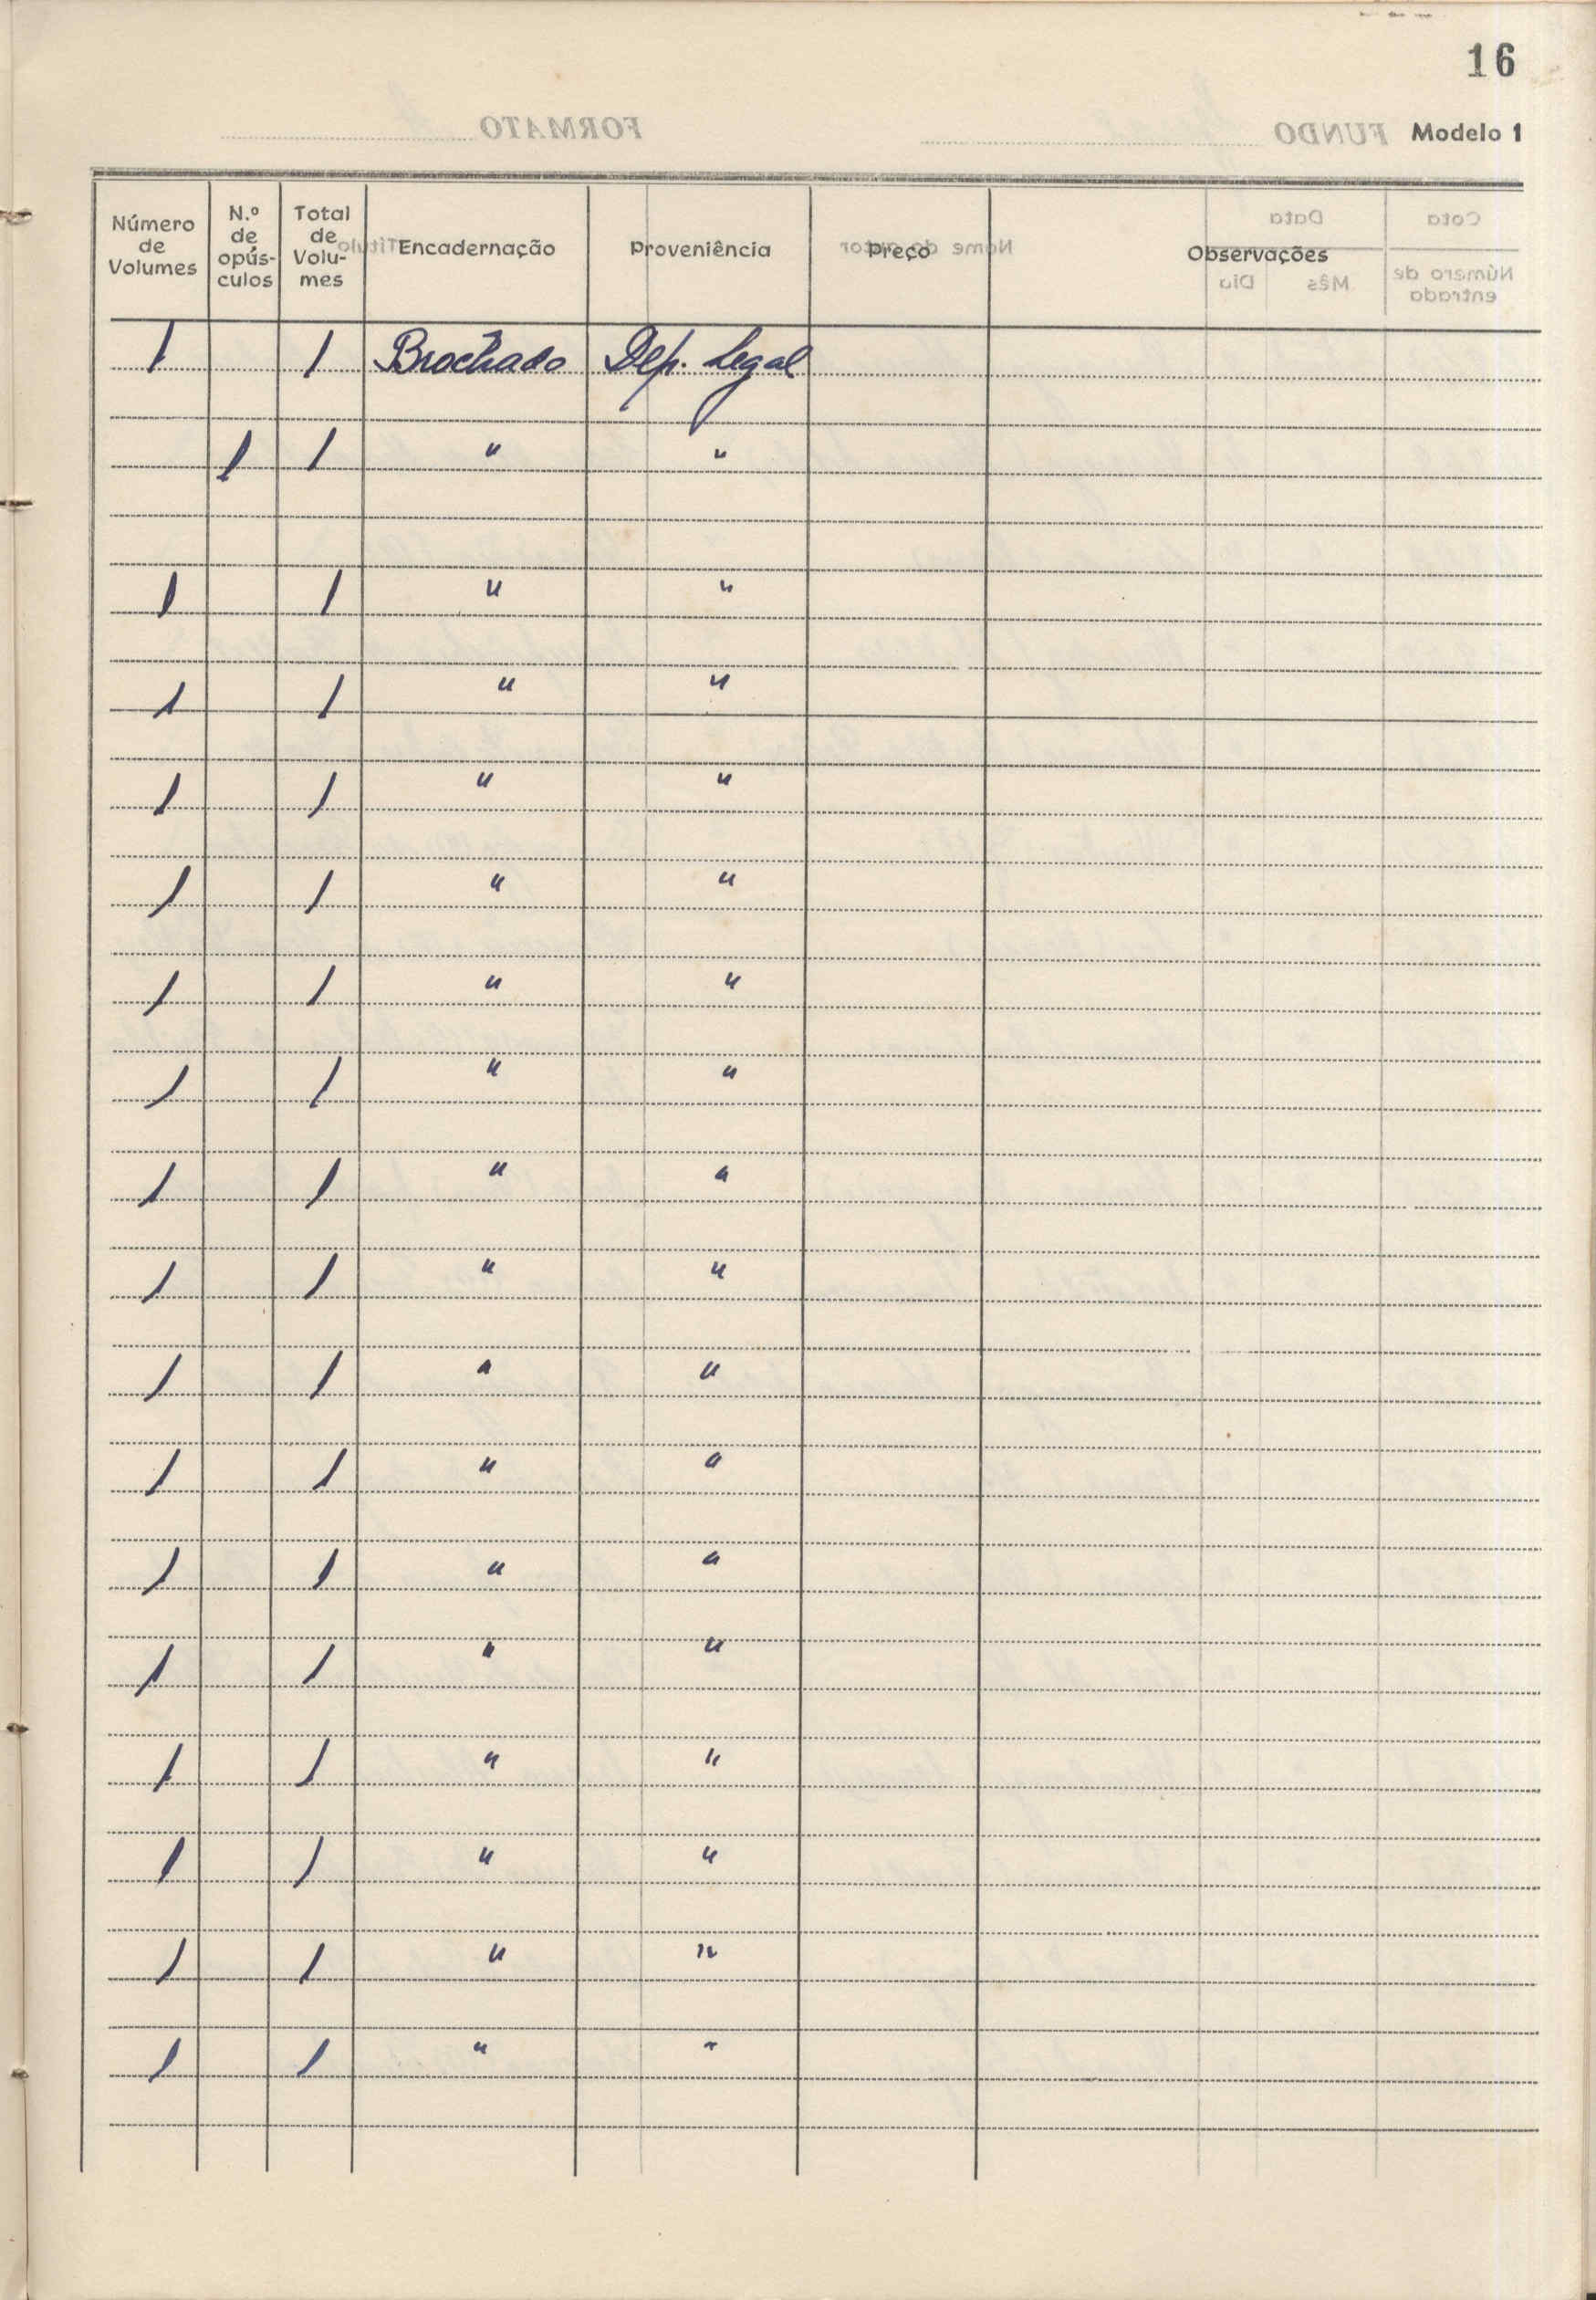 16
Modelo 1
Número de Volumes | N.º de opús-culos | Total de Volu-mes | Encadernação | Proveniência | Preço | Observações
1 | | 1 | Brochado | Dep. Legal
 | 1 | 1 | " | "
1 | | 1 | " | "
1 | | 1 | " | "
1 | | 1 | " | "
1 | | 1 | " | "
1 | | 1 | " | "
1 | | 1 | " | "
1 | | 1 | " | "
1 | | 1 | " | "
1 | | 1 | " | "
1 | | 1 | " | "
1 | | 1 | " | "
1 | | 1 | " | "
1 | | 1 | " | "
1 | | 1 | " | "
1 | | 1 | " | "
1 | | 1 | " | "